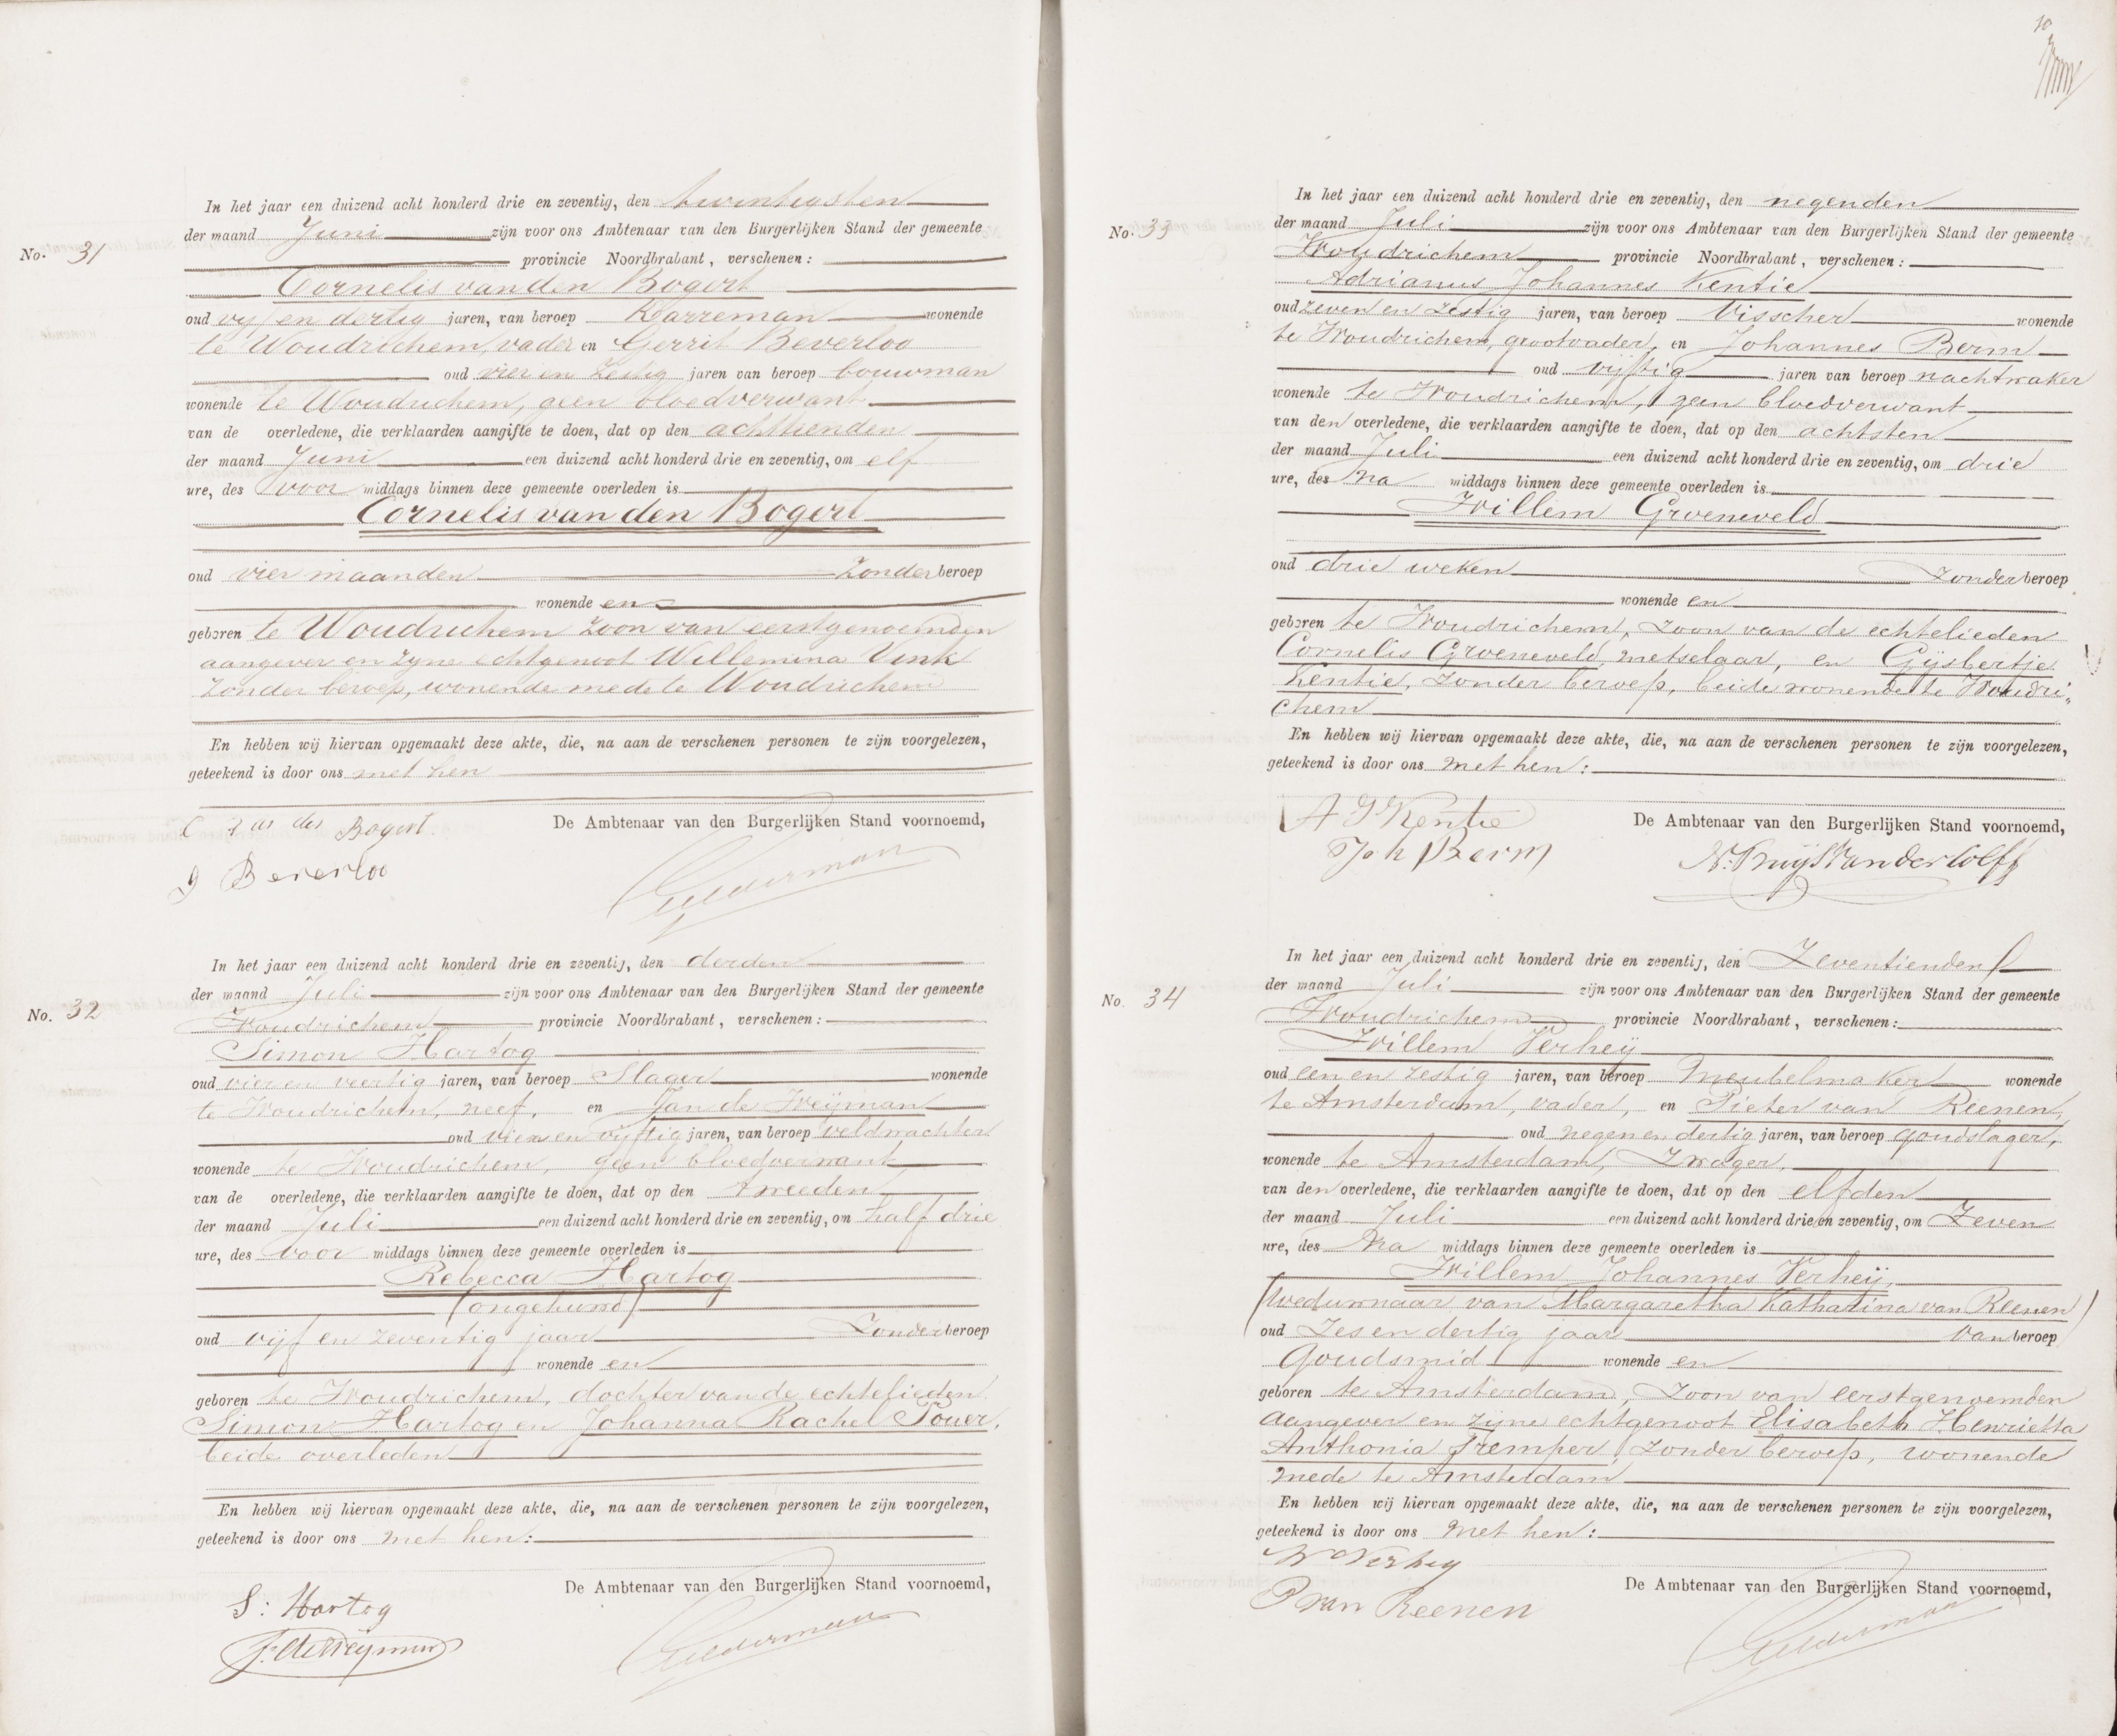 No. 31
In het jaar een duizend acht honderd drie en zeventig, den twintigsten
der maand Juni zijn voor ons Ambtenaar van den Burgerlijken Stand der gemeente
provincie Noordbrabant, verschenen:
Cornelis van den Bogert
oud vijf en dertig jaren, van beroep Karreman wonende
te Woudrichem, vader en Gerrit Beverloo
oud vier en zestig jaren van beroep bouwman
wonende te Woudrichem, geen bloedverwant
van de overledene, die verklaarden aangifte te doen, dat op den achttienden
der maand Juni een duizend acht honderd drie en zeventig, om elf
ure, des voor middags binnen deze gemeente overleden is
Cornelis van den Bogert
oud vier maanden zonder beroep
wonende en
geboren te Woudrichem zoon van eerstgenoemden
aangever en zyne echtgenoot Willemina Vink
zonder beroep, wonende mede te Woudrichem
En hebben wij hiervan opgemaakt deze akte, die, na aan de verschenen personen te zijn voorgelezen,
geteekend is door ons met hen
De Ambtenaar van den Burgerlijken Stand voornoemd,
C van den Bogert.
G Beverloo
Gelderman
No. 32
In het jaar een duizend acht honderd drie en zeventig, den derden
der maand Juli zijn voor ons Ambtenaar van den Burgerlijken Stand der gemeente
Woudrichem provincie Noordbrabant, verschenen:
Simon Hartog
oud vier en veertig jaren, van beroep Slager wonende
te Woudrichem, neef, en Jan de Weijman
oud vier en vijftig jaren, van beroep veldwachter
wonende te Woudrichem, geen bloedverwant
van de overledene, die verklaarden aangifte te doen, dat op den tweeden
der maand Juli een duizend acht honderd drie en zeventig, om half drie
ure, des voor middags binnen deze gemeente overleden is
Rebecca Hartog
(ongehuwd)
oud vijf en zeventig jaar zonder beroep
wonende en
geboren te Woudrichem, dochter van de echtelieden
Simon Hartog en Johanna Rachel Touer,
beide overleden
En hebben wij hiervan opgemaakt deze akte, die, na aan de verschenen personen te zijn voorgelezen,
geteekend is door ons met hen:
De Ambtenaar van den Burgerlijken Stand voornoemd,
S: Hartog
J. de Weijman
Gelderman
10
No. 33
In het jaar een duizend acht honderd drie en zeventig, den negenden
der maand Juli zijn voor ons Ambtenaar van den Burgerlijken Stand der gemeente
Woudrichem provincie Noordbrabant, verschenen:
Adrianus Johannes Kentie
oud zeven en zestig jaren, van beroep Visscher wonende
te Woudrichem, grootvader, en Johannes Berm
oud vijftig jaren van beroep nachtwaker
wonende te Woudrichem, geen bloedverwant
van den overledene, die verklaarden aangifte te doen, dat op den achtsten
der maand Juli een duizend acht honderd drie en zeventig, om drie
ure, des na middags binnen deze gemeente overleden is
Willem Groeneveld
oud drie weken zonder beroep
wonende en
geboren te Woudrichem, zoon van de echtelieden
Cornelis Groeneveld, metselaar, en Gijsbertje
Kentie, zonder beroep, beide wonende te Woudri„
chem
En hebben wij hiervan opgemaakt deze akte, die, na aan de verschenen personen te zijn voorgelezen,
geteekend is door ons met hen:
De Ambtenaar van den Burgerlijken Stand voornoemd,
A J Kentie
Joh Berm
No. 34
In het jaar een duizend acht honderd drie en zeventig, den Zeventienden
der maand Juli zijn voor ons Ambtenaar van den Burgerlijken Stand der gemeente
Woudrichem provincie Noordbrabant, verschenen:
Willem Verheij
oud een en zestig jaren, van beroep Meubelmaker wonende
te Amsterdam, vader, en Pieter van Reenen,
oud negen en dertig jaren, van beroep goudslager,
wonende te Amsterdam, Zwager,
van den overledene, die verklaarden aangifte te doen, dat op den elfden
der maand Juli een duizend acht honderd drie en zeventig, om Zeven
ure, des Na middags binnen deze gemeente overleden is
Willem Johannes Verheij,
(weduwnaar van Margaretha Katharina van Reenen)
oud Zes en dertig jaar Van beroep
Goudsmid wonende en
geboren te Amsterdam, Zoon van eerstgenoemden
aangever en zijne echtgenoot Elisabeth Henrietta
Anthonia Tremper, zonder beroep, wonende
mede te Amsterdam
En hebben wij hiervan opgemaakt deze akte, die, na aan de verschenen personen te zijn voorgelezen,
geteekend is door ons met hen:
De Ambtenaar van den Burgerlijken Stand voornoemd,
W Verhey
P van Reenen
Gelderman